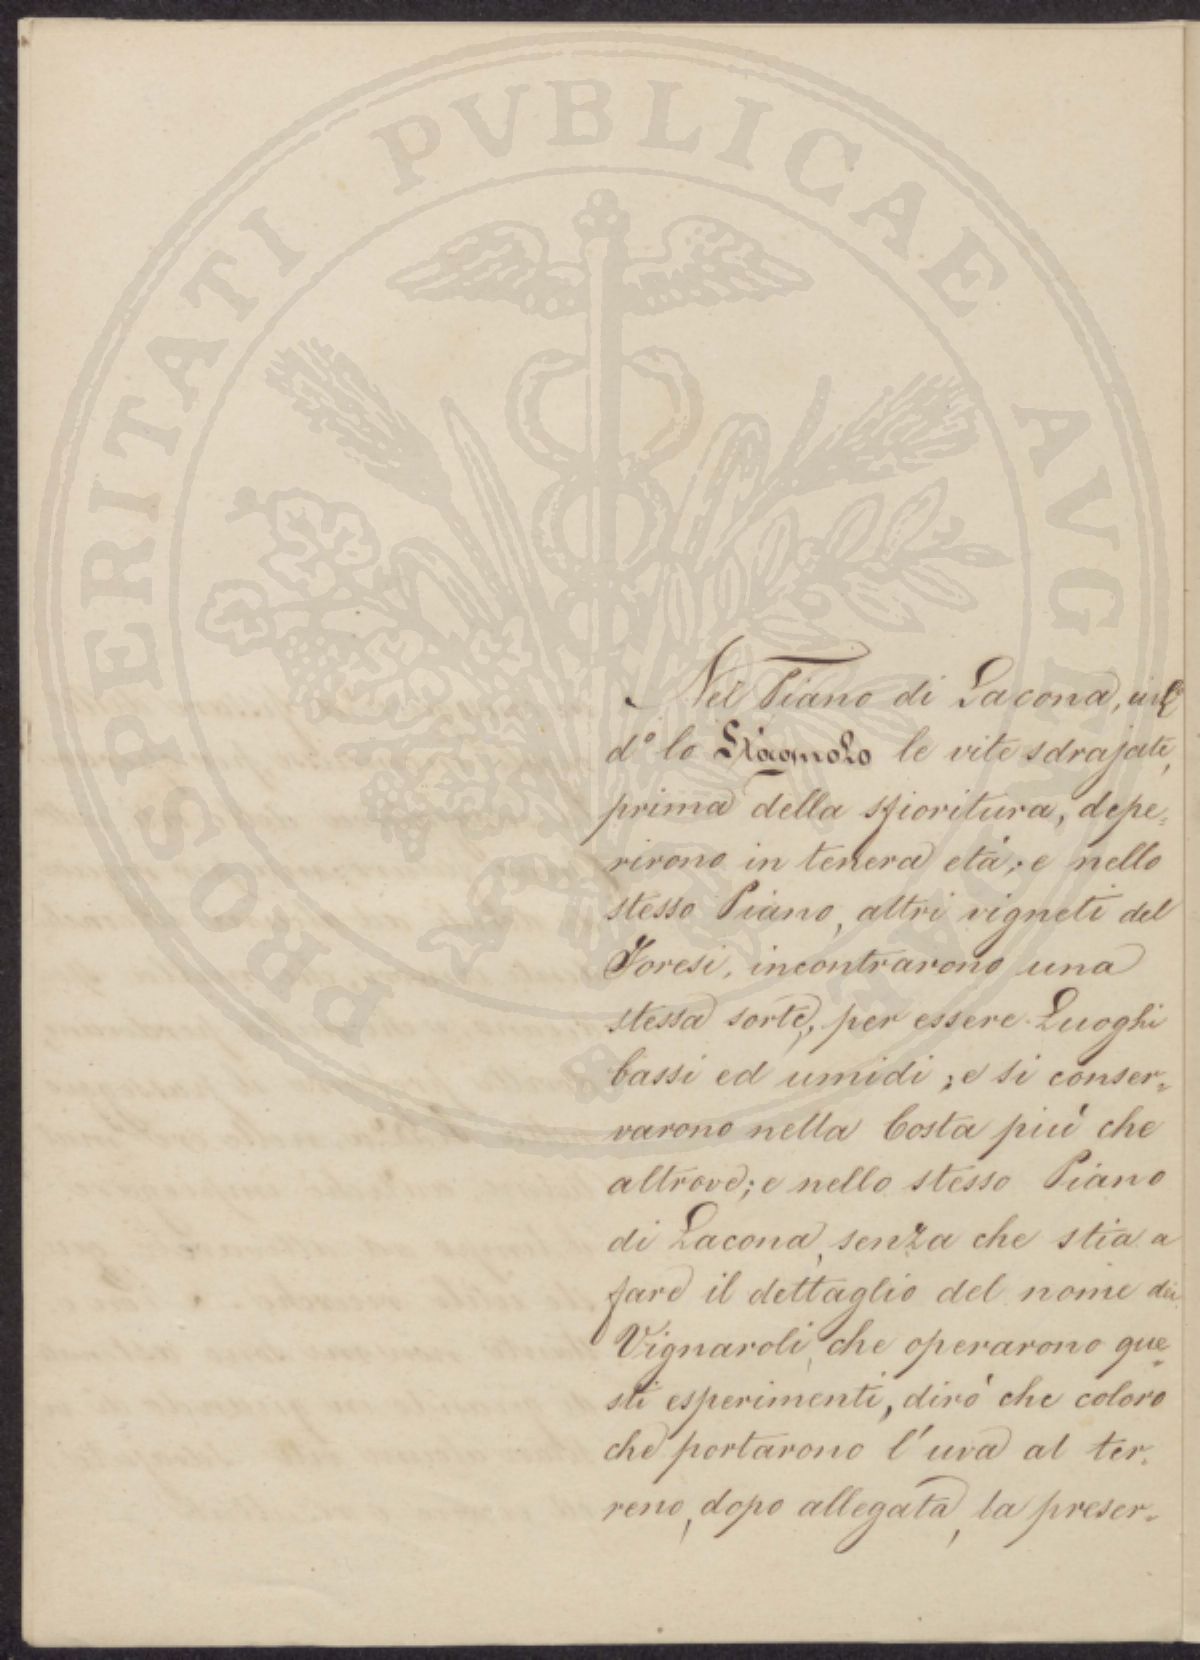 PROSPERITATI PVBLICAE AVGENDAE
Nel Piano di Lacona,
d.º lo Stagnolo le vite sdrajate,
prima della sfioritura, depe=
rirono in tenera età; e nello
stesso Piano, altri vigneti del
Foresi, incontrarono una
stessa sorte, per essere Luoghi
bassi ed umidi; e si conser=
varono nella Costa più che
altrove; e nello stesso Piano
di Lacona, senza che stia a
fare il dettaglio del nome dei
Vignaroli, che operarono que=
sti esperimenti, dirò che coloro
che portarono l'uva al ter=
reno, dopo allegata, la preser=